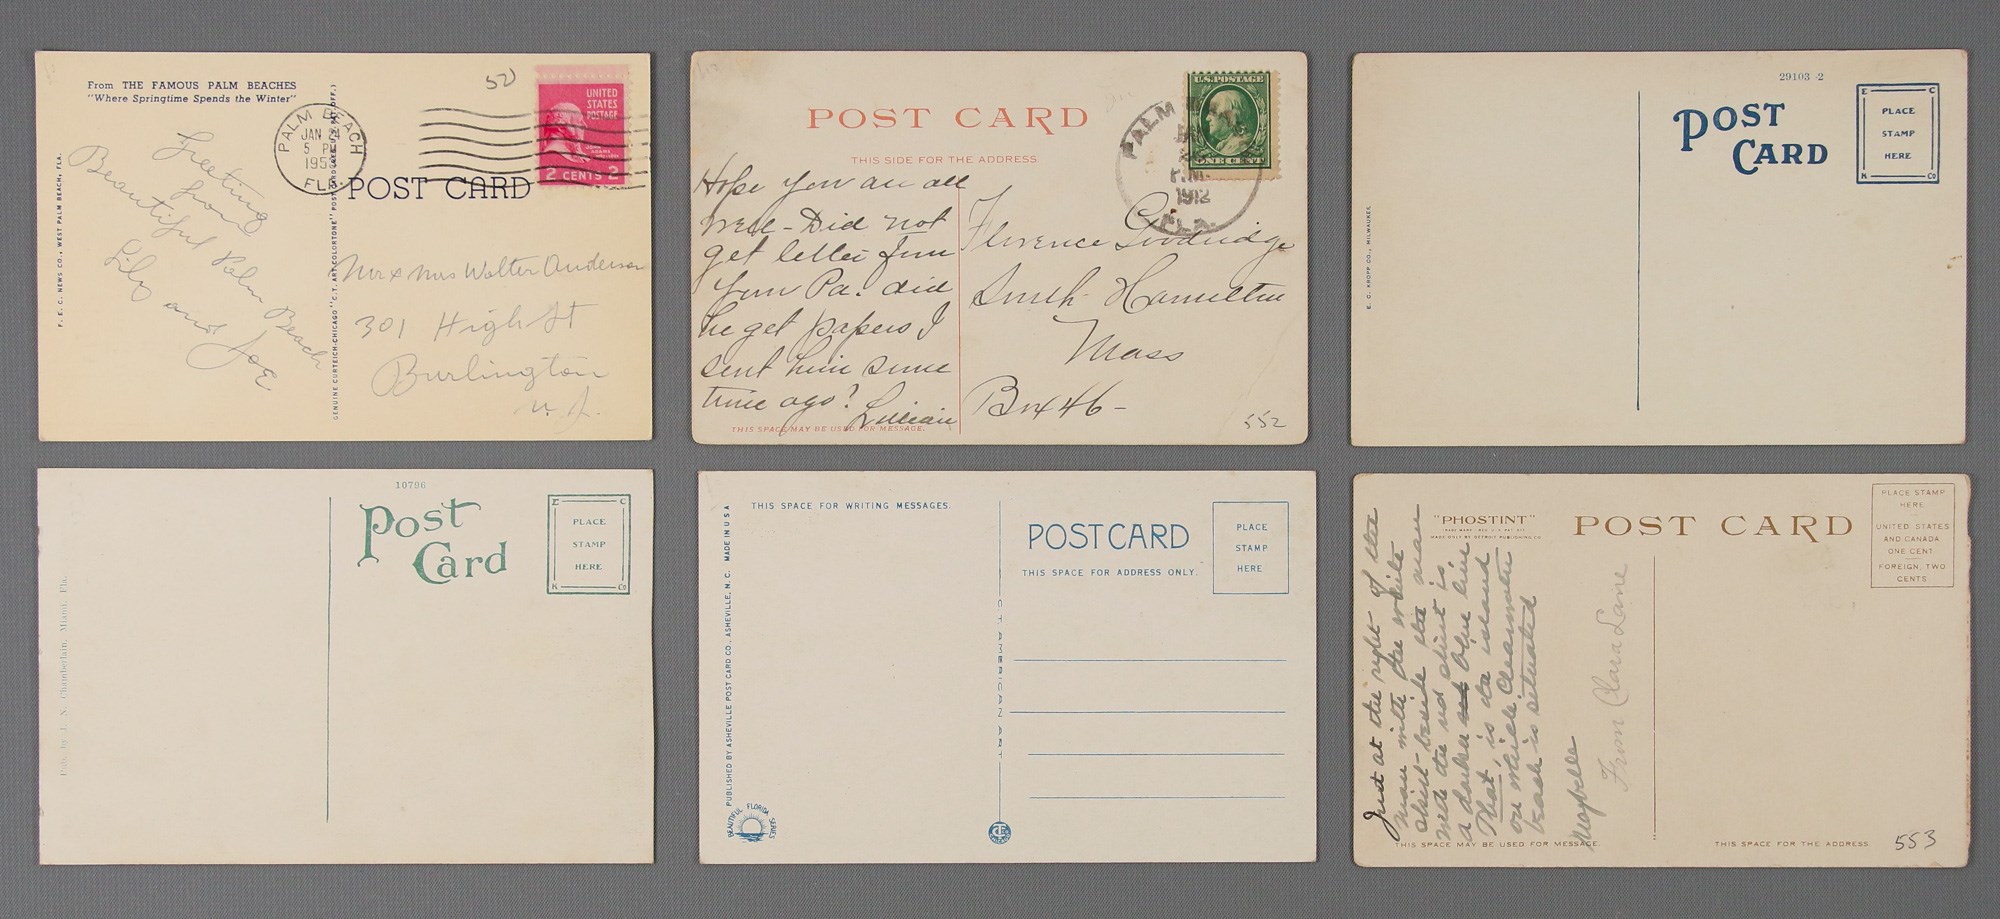 From THE FAMOUS PALM BEACHES
"Where Springtime Spends the Winter"
PALM BEACH
JAN 24
5 PM
FLA.
UNITED
STATES
POSTAGE
JOHN
ADAMS
2 CENTS 2
POST CARD
Greeting
from
Beautiful Palm Beach
Lily and Joe
Mr & Mrs Walter Anderson
301 High St
Burlington
N. J.
F. E. C. NEWS CO., WEST PALM BEACH, FLA.
GENUINE CURTEICH-CHICAGO "C.T. ART-COLORTONE" POST CARD (REG. U.S. PAT. OFF.)
POST CARD
THIS SIDE FOR THE ADDRESS
U.S. POSTAGE
ONE CENT
PALM
P.M.
1912
FLA.
Hope you are all
well - Did not
get letter from
your Pa. did
he get papers I
sent him some
time ago? Lillian
Florence Goodridge
South Hamilton
Mass
Box 46-
THIS SPACE MAY BE USED FOR MESSAGE.
552
29103-2
POST
CARD
E C
PLACE
STAMP
HERE
K Co
E. C. KROPP CO., MILWAUKEE
10796
Post
Card
E C
PLACE
STAMP
HERE
K Co
Pub. by J. N. Chamberlain, Miami, Fla.
THIS SPACE FOR WRITING MESSAGES.
POST CARD
THIS SPACE FOR ADDRESS ONLY.
PLACE
STAMP
HERE
PUBLISHED BY ASHEVILLE POST CARD CO., ASHEVILLE, N. C. MADE IN U S A
C.T. AMERICAN ART
BEAUTIFUL FLORIDA SERIES
"PHOSTINT"
MADE ONLY BY DETROIT PUBLISHING CO.
POST CARD
PLACE STAMP
HERE
UNITED STATES
AND CANADA
ONE CENT
FOREIGN, TWO
CENTS
Just at the right of the
man with the white
shirt-beside the man
with the red shirt is
a darker blue line
That, is the island
on which Clearwater
beach is situated
Maybelle
From Clara Lane
THIS SPACE MAY BE USED FOR MESSAGE.
THIS SPACE FOR THE ADDRESS
553